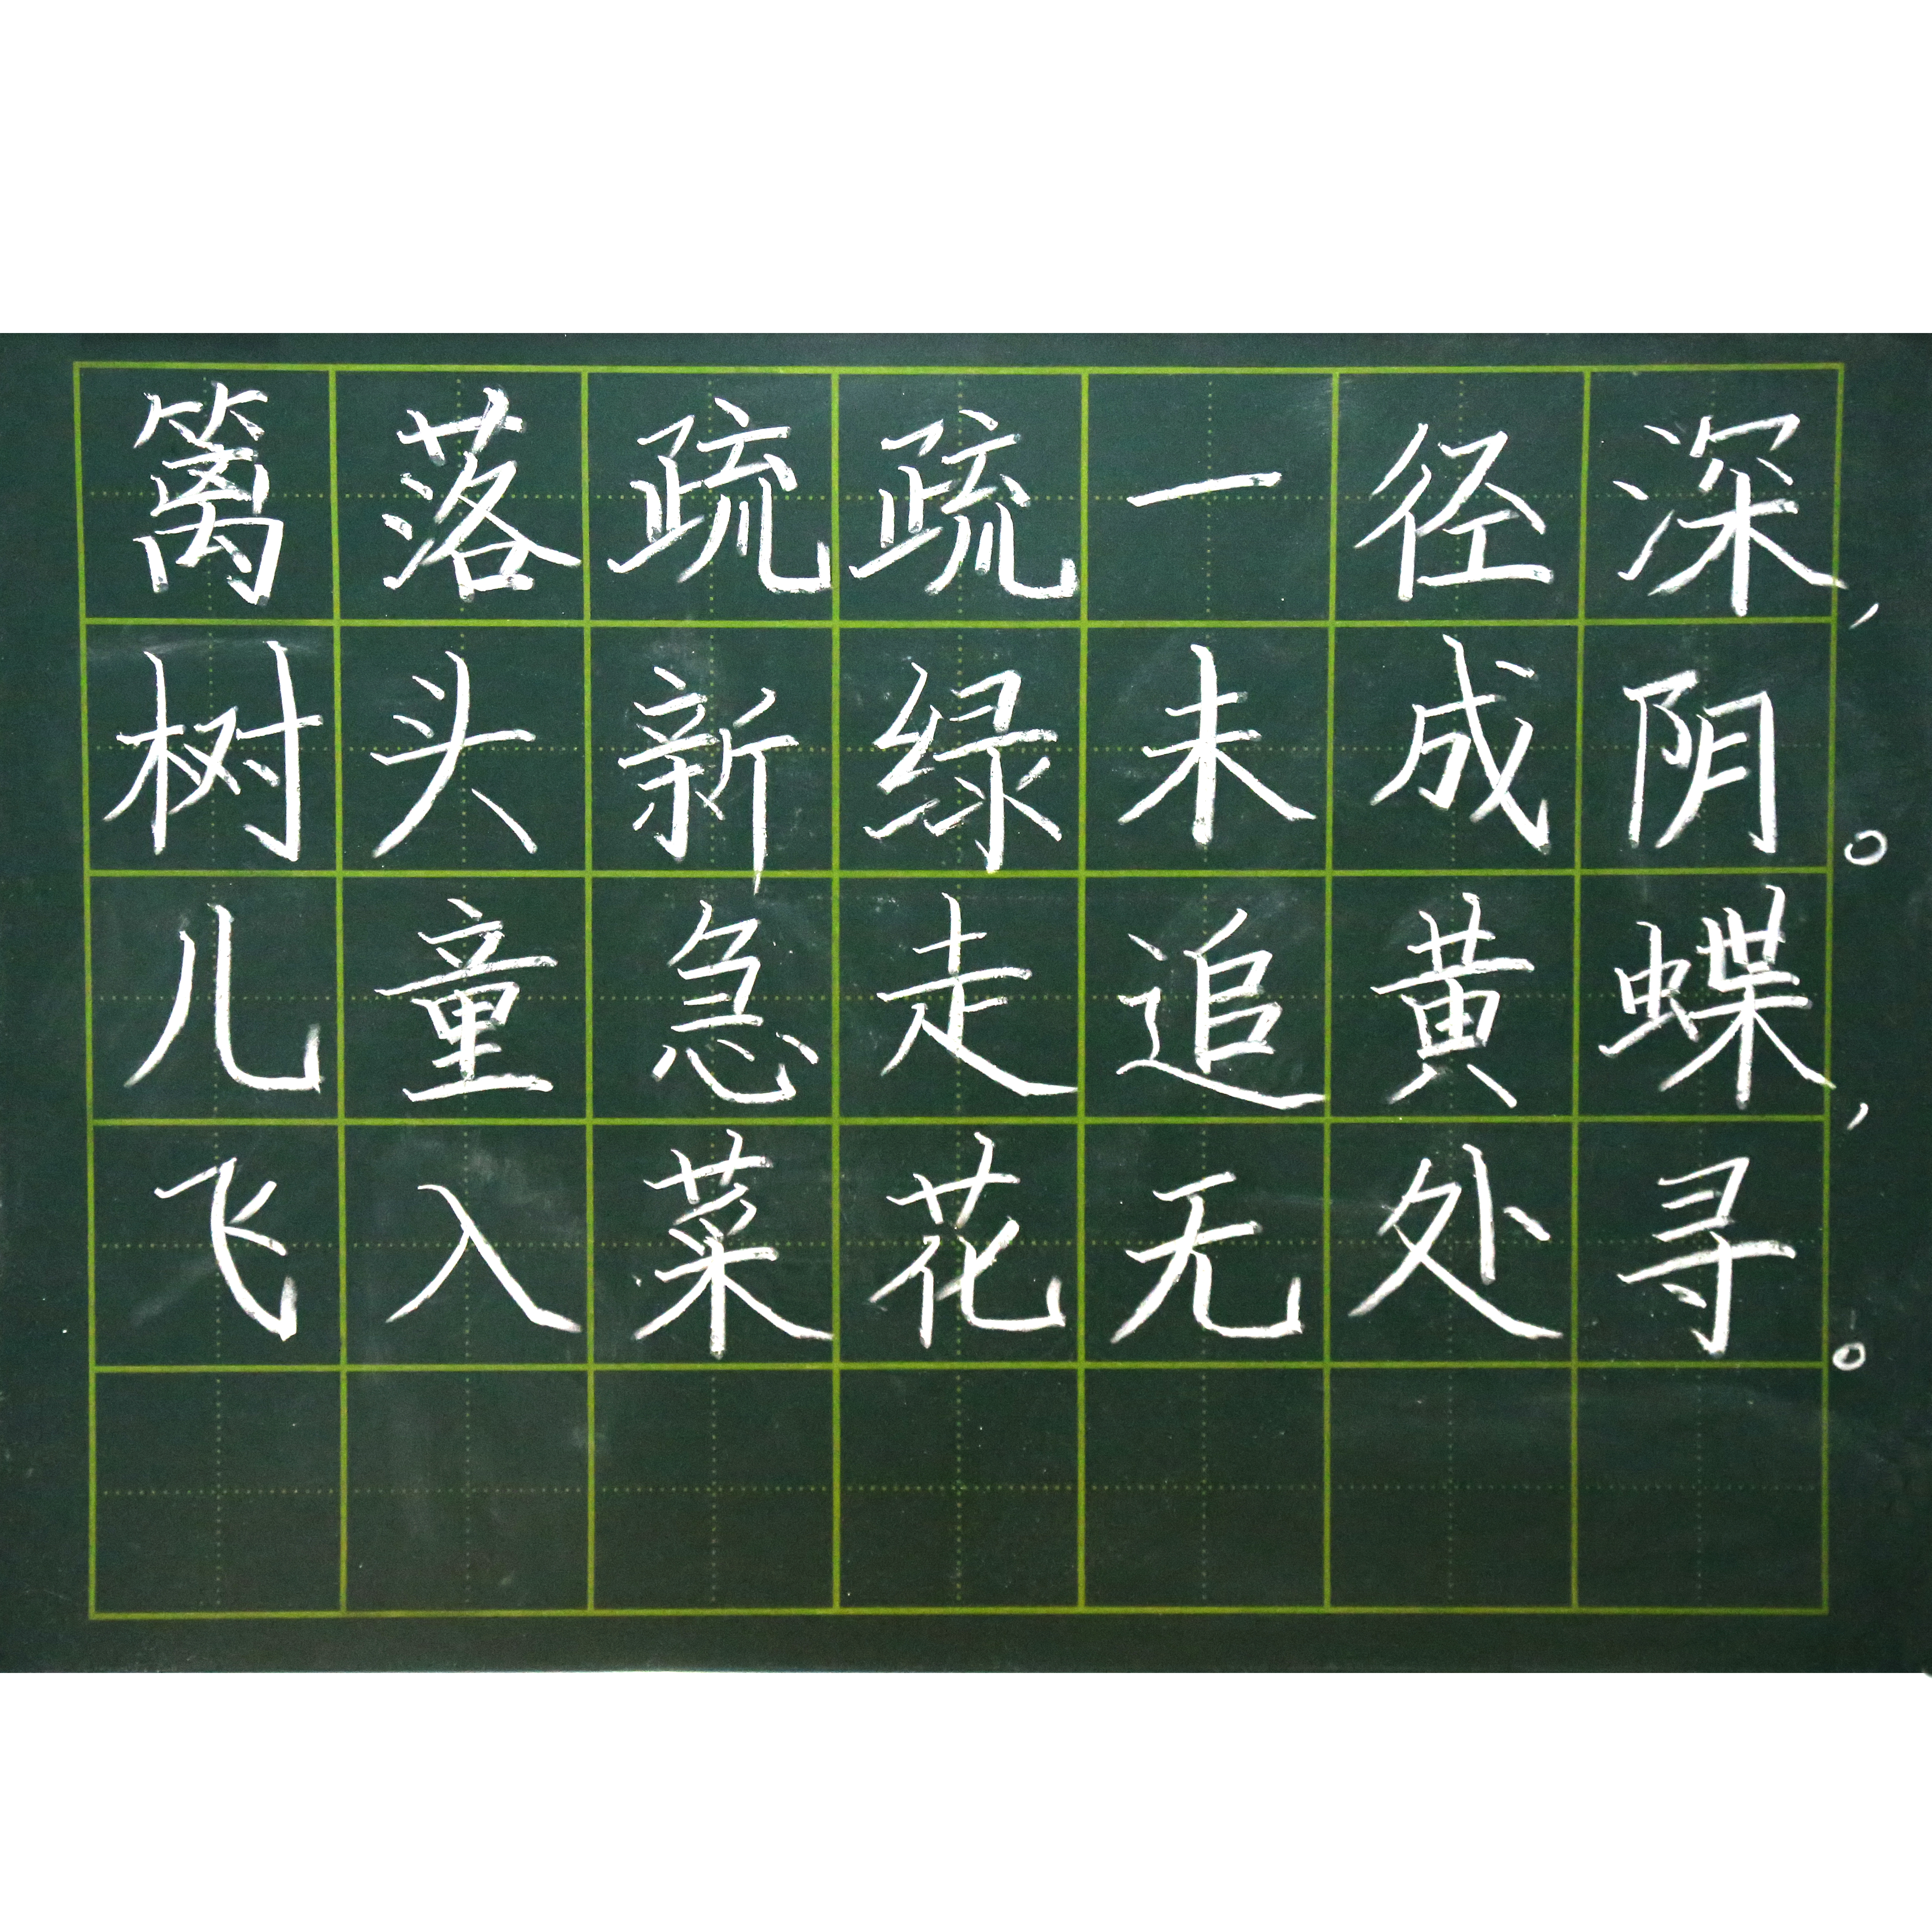 篱落疏疏一径深，
树头新绿未成阴。
儿童急走追黄蝶，
飞入菜花无处寻。